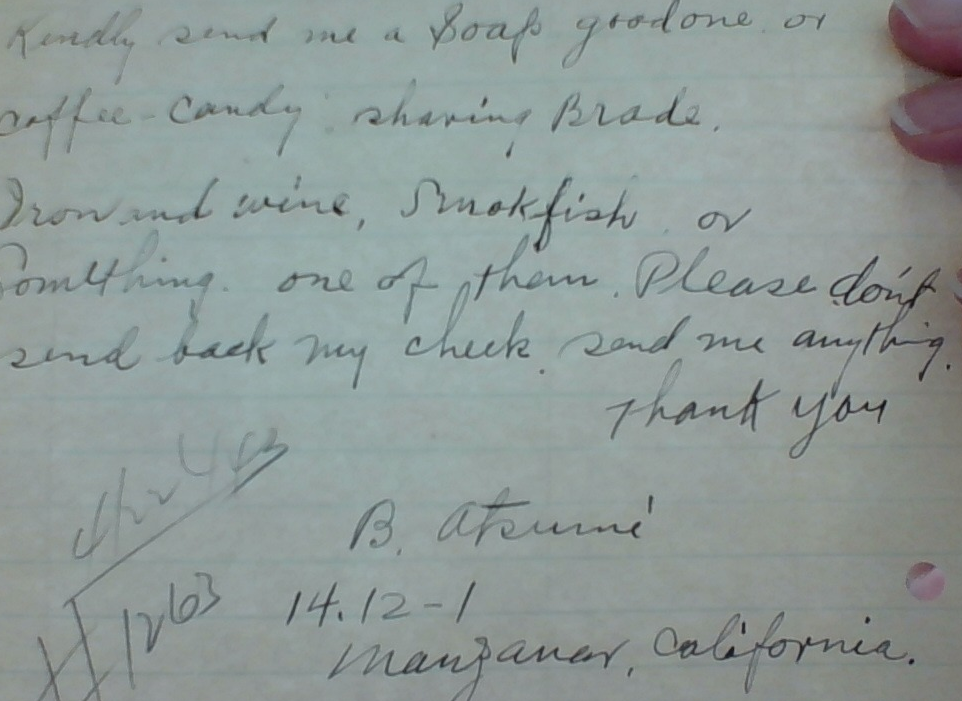 Kindly send me a Soap good one or
coffee - Candy shaving Brade.
Iron and wine, Smokfish or
Somthing. one of them. Please don't
send back my check. send me anything.
Thank you
B. Atsumi
14.12-1
Manzanar, California.
1263